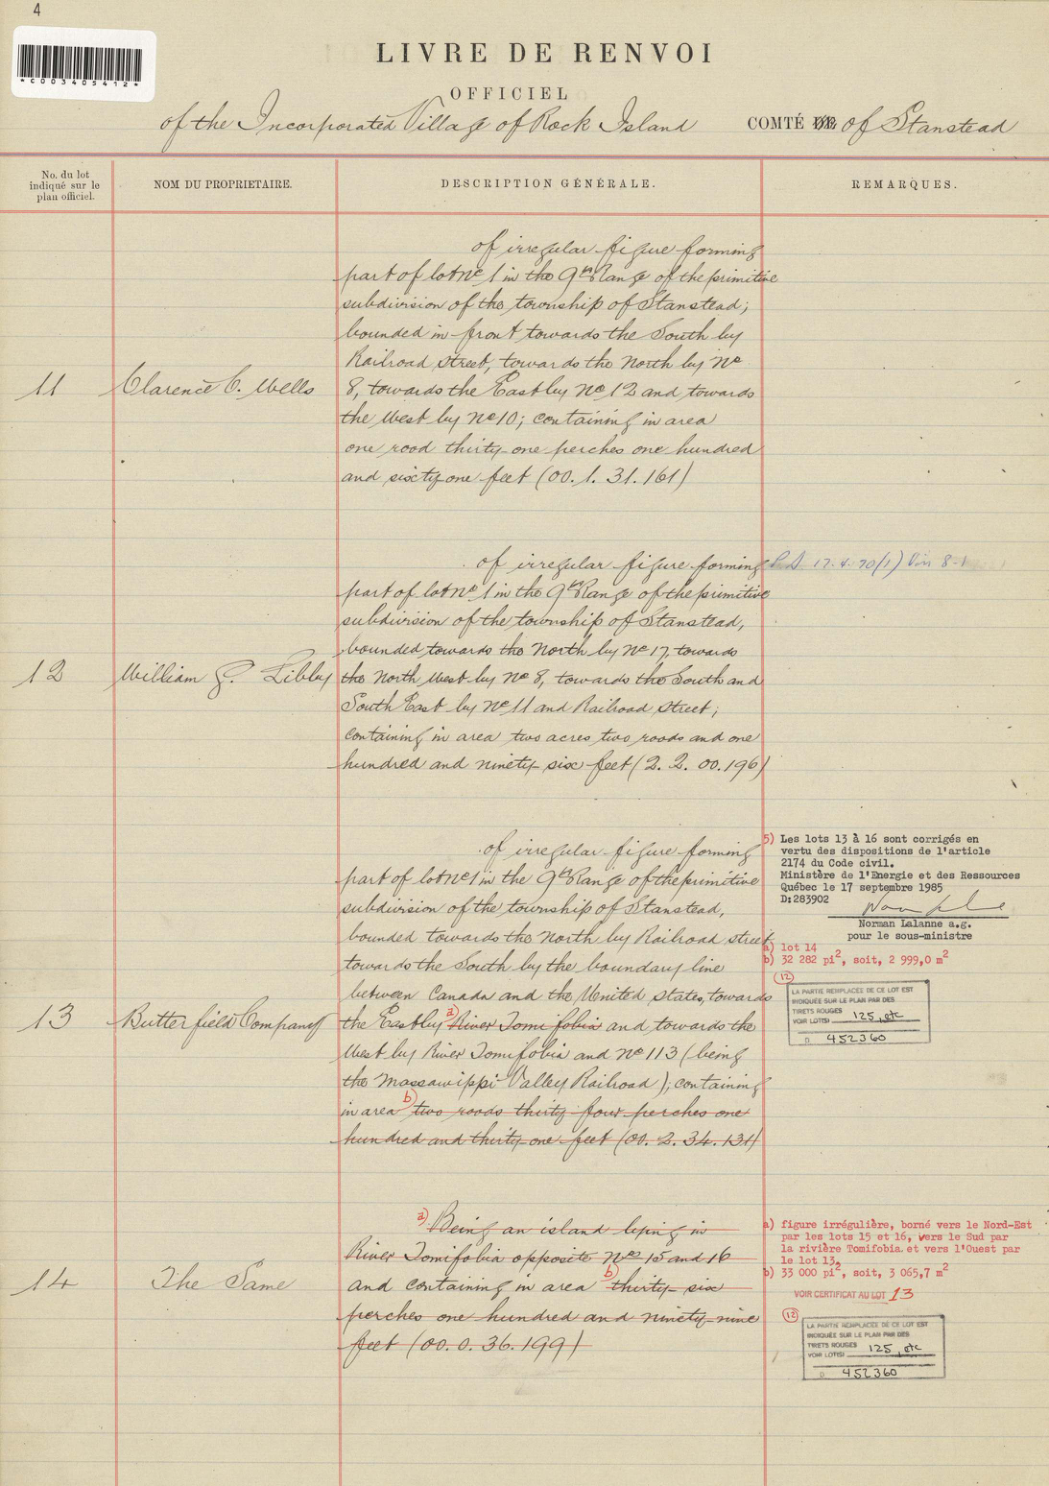 4
*C003405412*
LIVRE DE RENVOI
OFFICIEL
of the Incorporated Village of Rock Island COMTÉ DE of Stanstead
No. du lot
indiqué sur le
plan officiel.
NOM DU PROPRIETAIRE.
DESCRIPTION GÉNÉRALE.
REMARQUES.
of irregular figure forming
part of lot No 1 in the 9th Range of the primitive
subdivision of the township of Stanstead;
bounded in front towards the South by
Railroad Street, towards the North by No
11 Clarence C. Wells 8, towards the East by No 12 and towards
the West by No 10; containing in area
one rood thirty one perches one hundred
and sixty one feet (00. 1. 31. 161)
of irregular figure forming
part of lot No 1 in the 9th Range of the primitive
subdivision of the township of Stanstead,
bounded towards the North by No 17, towards
12 William G. Libby the North West by No 8, towards the South and
South East by No 11 and Railroad Street;
containing in area two acres two roods and one
hundred and ninety six feet (2. 2. 00. 196)
of irregular figure forming
part of lot No 1 in the 9th Range of the primitive
subdivision of the township of Stanstead,
bounded towards the North by Railroad street
towards the South by the boundary line
between Canada and the United States, towards
13 Butterfield Company the East by a) River Tomifobia and towards the
West by River Tomifobia and No 113 (being
the Massawippi Valley Railroad); containing
in area b) two roods thirty four perches one
hundred and thirty one feet (00. 2. 34. 131)
5) Les lots 13 à 16 sont corrigés en
vertu des dispositions de l'article
2174 du Code civil.
Ministère de l'Energie et des Ressources
Québec le 17 septembre 1985
D:283902
Norman Lalanne a.g.
pour le sous-ministre
a) lot 14
b) 32 282 pi2, soit, 2 999,0 m2
12
LA PARTIE REMPLACÉE DE CE LOT EST
INDIQUÉE SUR LE PLAN PAR DES
TIRETS ROUGES
VOIR LOT(S) 125, etc
D 452360
a) Being an island lying in
River Tomifobia opposite Nos 15 and 16
14 The Same and containing in area b) thirty six
perches one hundred and ninety nine
feet (00. 0. 36. 199)
a) figure irrégulière, borné vers le Nord-Est
par les lots 15 et 16, vers le Sud par
la rivière Tomifobia et vers l'Ouest par
le lot 13.
b) 33 000 pi2, soit, 3 065,7 m2
VOIR CERTIFICAT AU LOT 13
12
LA PARTIE REMPLACÉE DE CE LOT EST
INDIQUÉE SUR LE PLAN PAR DES
TIRETS ROUGES
VOIR LOT(S) 125, etc
D 452360